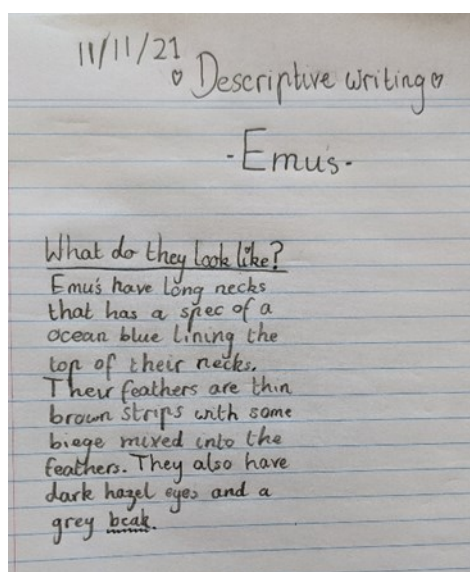 11/11/21
♡ Descriptive writing ♡
- Emu's -
What do they look like?
Emu's have long necks
that has a spec of a
ocean blue lining the
top of their necks.
Their feathers are thin
brown strips with some
biege mixed into the
feathers. They also have
dark hazel eyes and a
grey beak.